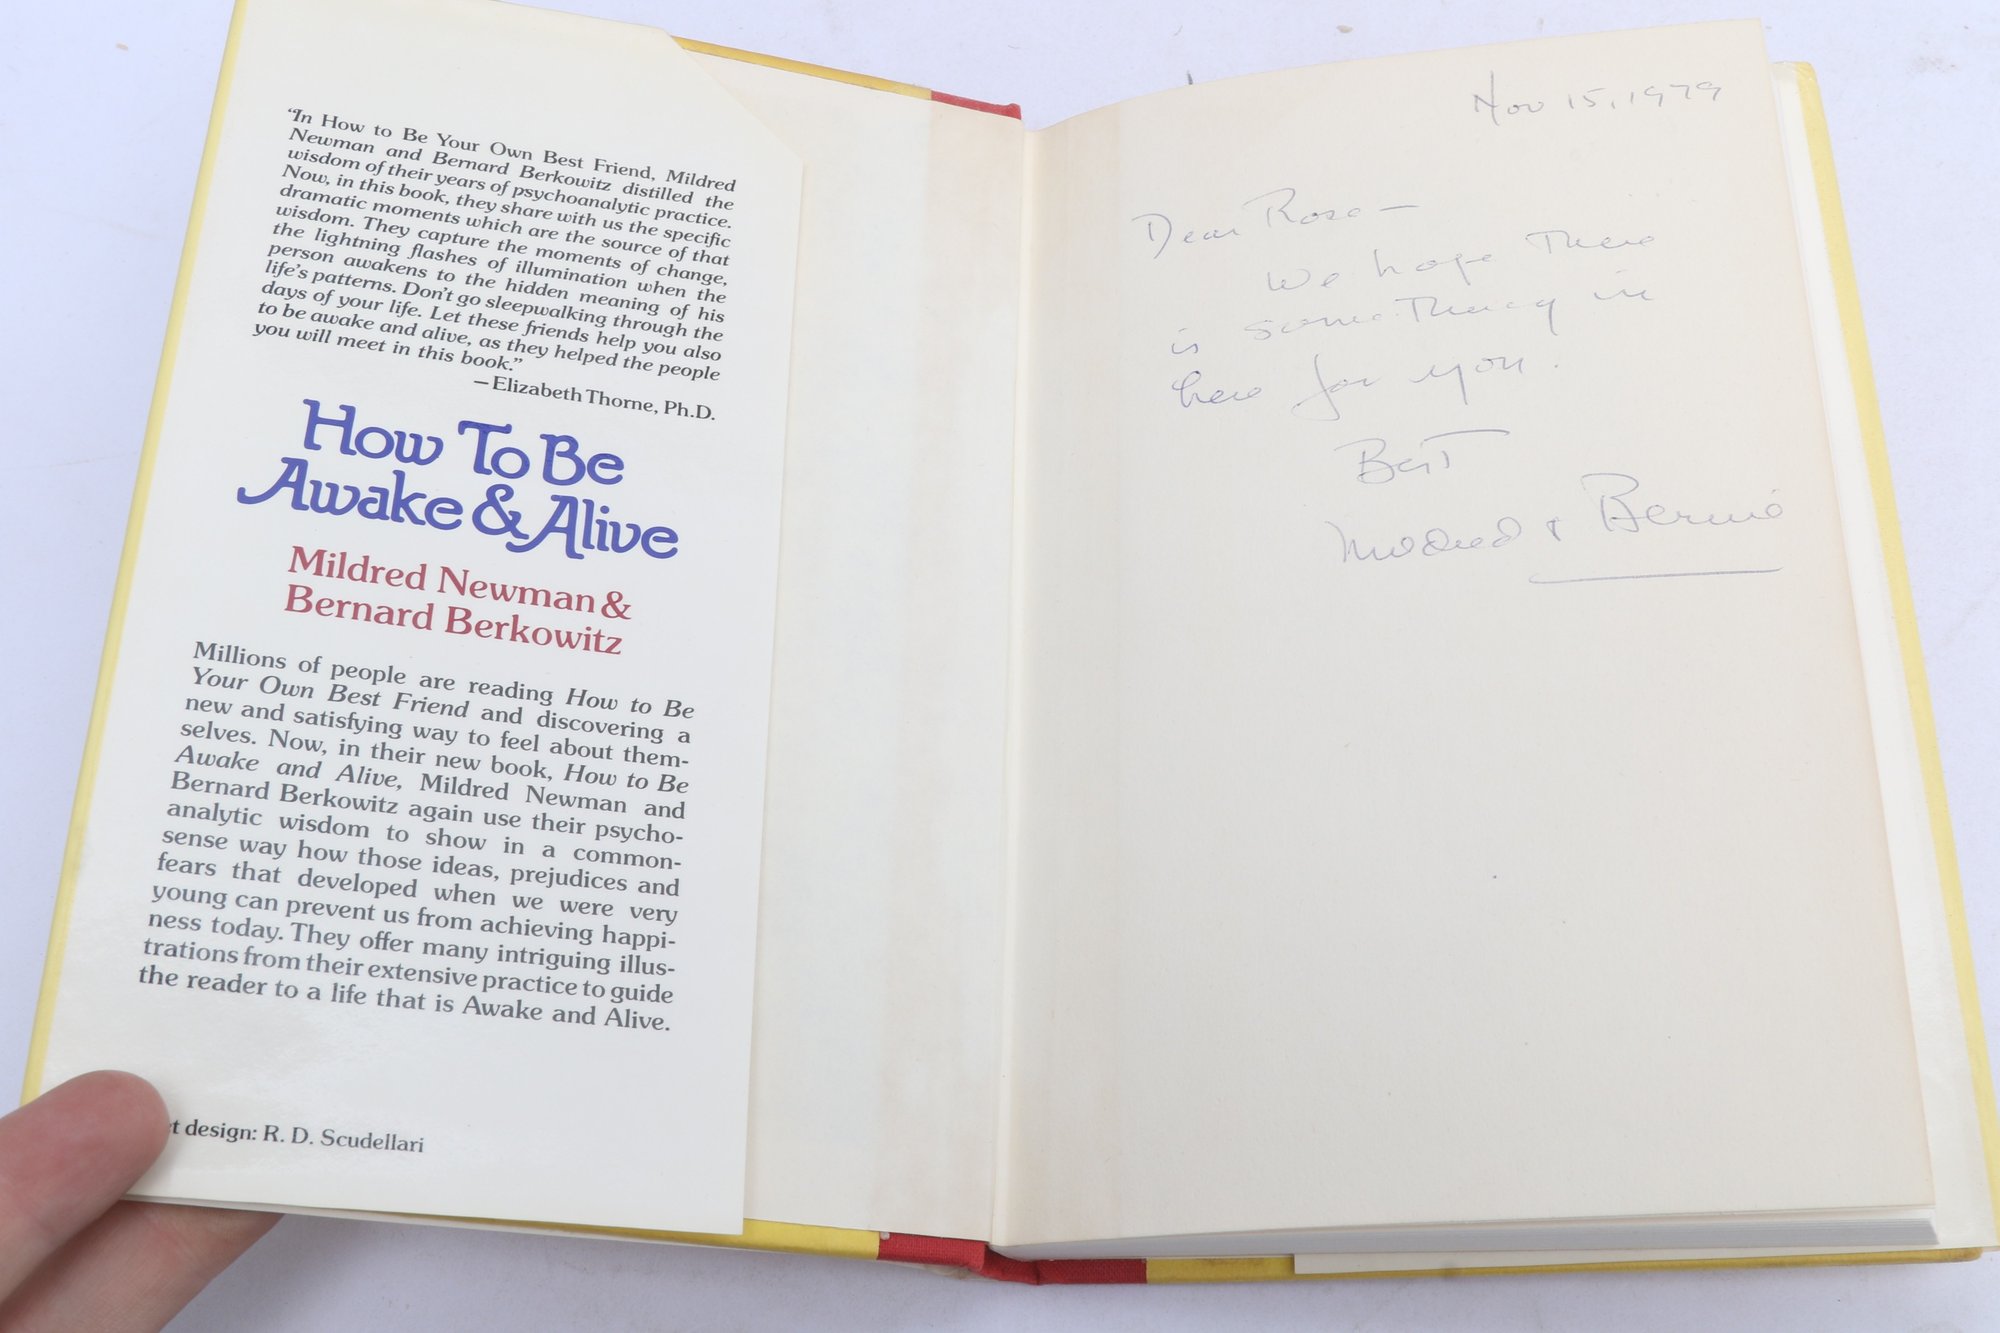 “In How to Be Your Own Best Friend, Mildred
Newman and Bernard Berkowitz distilled the
wisdom of their years of psychoanalytic practice.
Now, in this book, they share with us the specific
dramatic moments which are the source of that
wisdom. They capture the moments of change,
the lightning flashes of illumination when the
person awakens to the hidden meaning of his
life’s patterns. Don’t go sleepwalking through the
days of your life. Let these friends help you also
to be awake and alive, as they helped the people
you will meet in this book.”
—Elizabeth Thorne, Ph.D.
How To Be
Awake & Alive
Mildred Newman &
Bernard Berkowitz
Millions of people are reading How to Be
Your Own Best Friend and discovering a
new and satisfying way to feel about them-
selves. Now, in their new book, How to Be
Awake and Alive, Mildred Newman and
Bernard Berkowitz again use their psycho-
analytic wisdom to show in a common-
sense way how those ideas, prejudices and
fears that developed when we were very
young can prevent us from achieving happi-
ness today. They offer many intriguing illus-
trations from their extensive practice to guide
the reader to a life that is Awake and Alive.
et design: R. D. Scudellari
Nov 15, 1979
Dear Rose —
We hope there
is something in
here for you.
Best
Mildred & Bernie